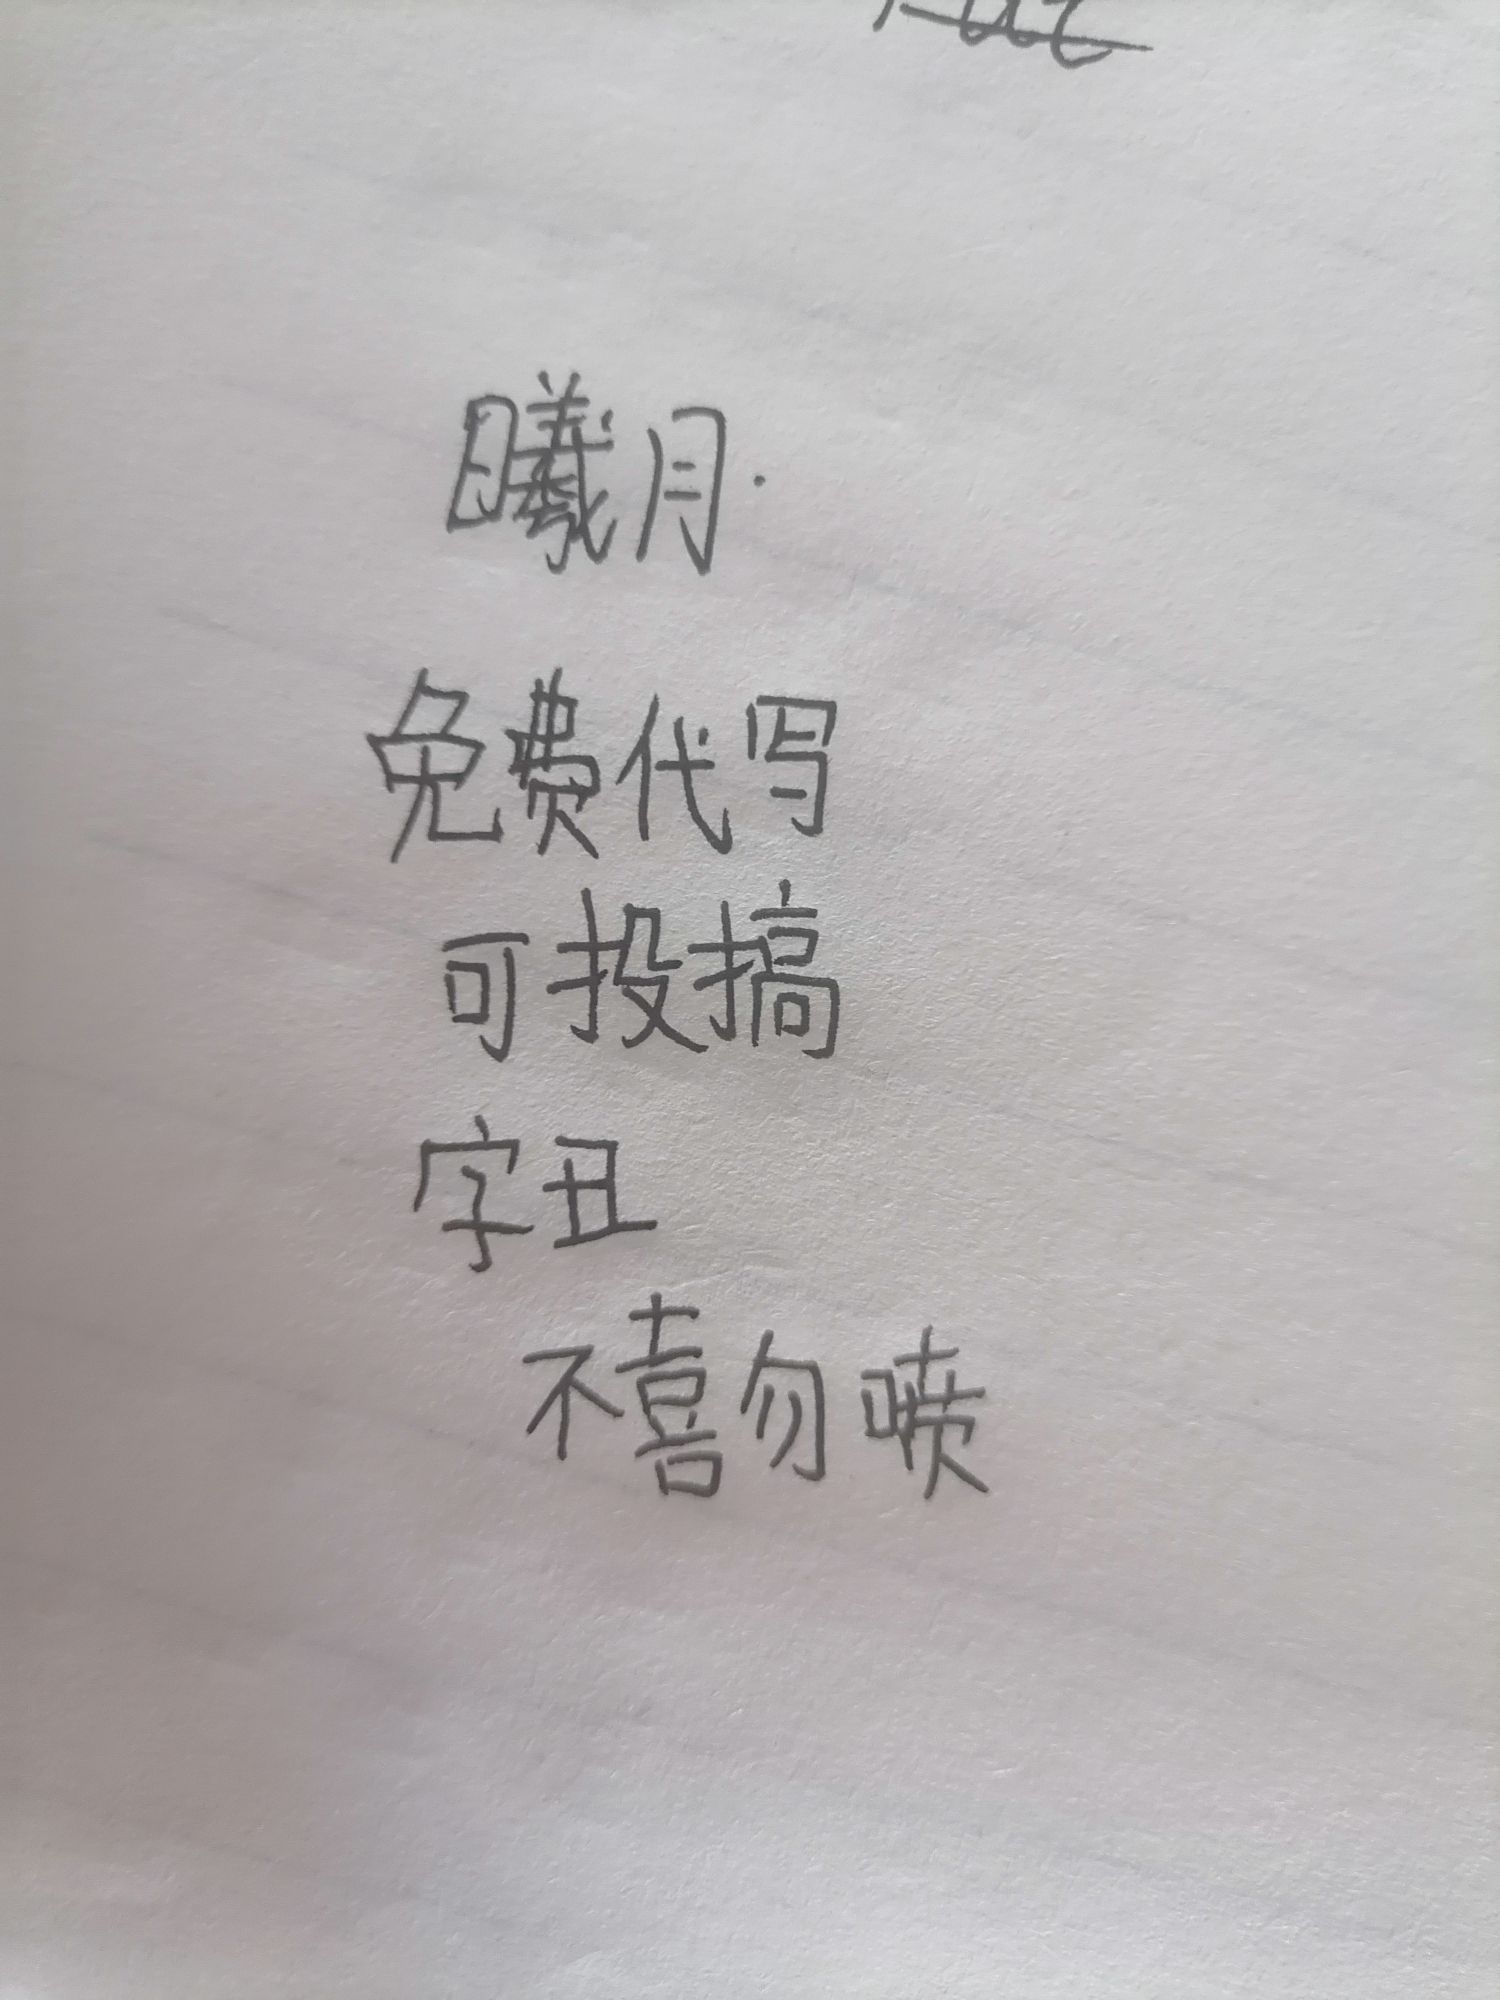 曦月.
免费代写
可投搞
字丑
不喜勿喷